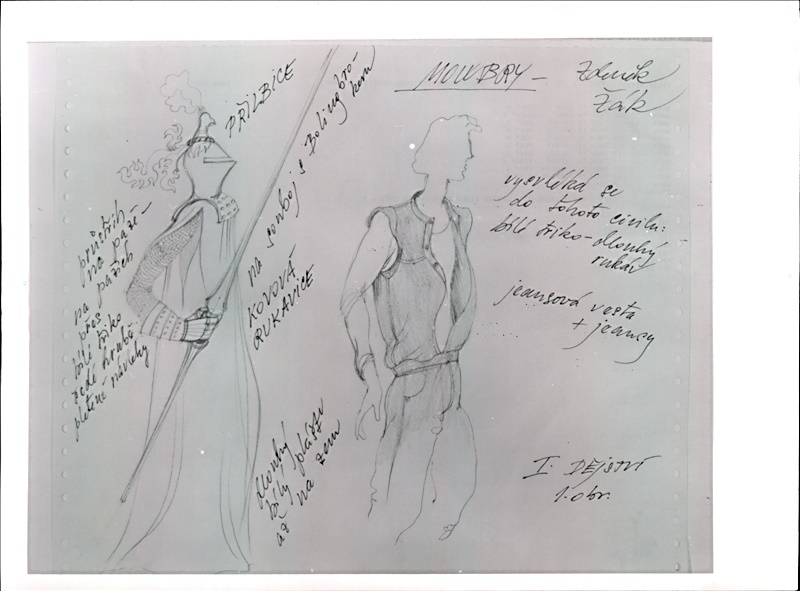 PŘILBICE
na souboj s Bolingbro-
kem
KOVOVÁ
RUKAVICE
průstřih
na paže-
na pažích
přes
bílé triko
šedé hrubé
pletené návleky
dlouhý
bílý plášť
až na zem
MOWBRAY -
Zdeněk
Žák
vysvléká se
do tohoto civilu:
bílé triko - dlouhý
rukáv
jeansová vesta
+ jeansy
I. DĚJSTVÍ
1. obr.